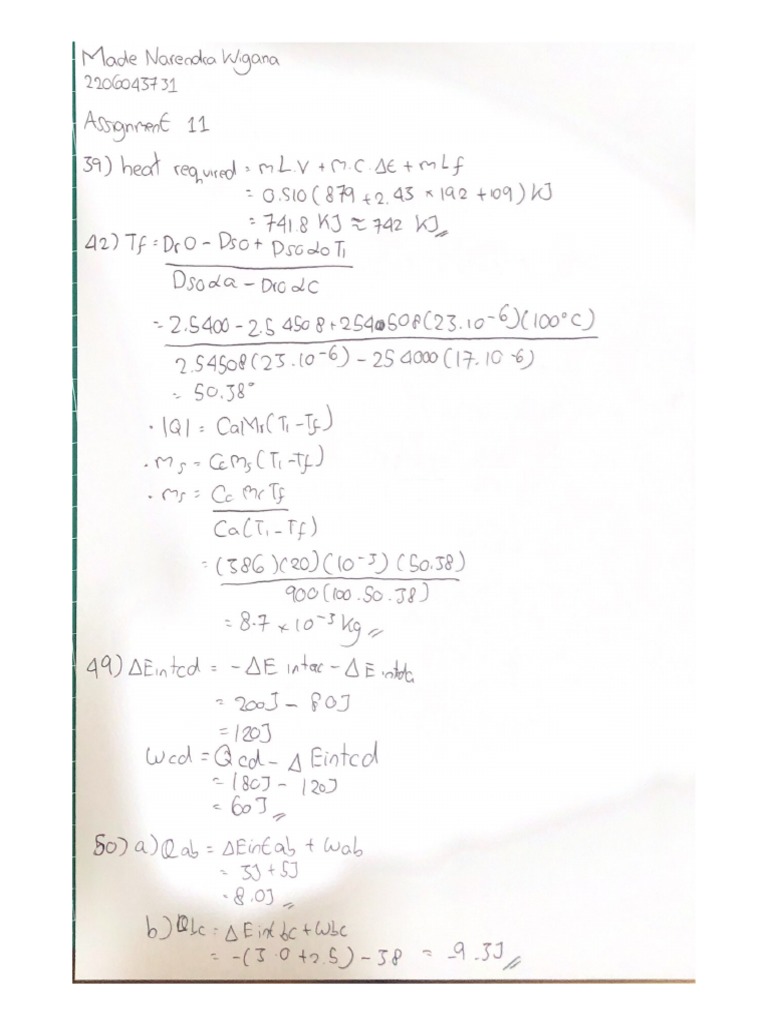 Made Narendra Wigana
2206043731
Assignment 11
39) heat required = mL.V + m.c.Δt + mLf
= 0.510 (879 + 2.43 × 192 + 109) kJ
= 741.8 KJ ≈ 742 KJ
42) Tf = Dr0 - Ds0 + Ds0 α0 T1
Ds0 αa - Dr0 αc
= 2.5400 - 2.54508 + 2.54508 (23.10-6)(100°C)
2.54508 (23.10-6) - 2.54000 (17.10-6)
= 50.38°
· |Q| = CaMs(Ti - Tf)
· ms = CcMs(Ti - Tf)
· ms = Cc Mr Tf
Ca(Ti - Tf)
= (386)(20)(10-3)(50.38)
900 (100.50.38)
= 8.7 × 10-3 kg
49) ΔEintcd = -ΔE intac - ΔE intda
= 200J - 80J
= 120J
Wcd = Qcd - Δ Eintcd
= 180J - 120J
= 60J
50) a) Qab = ΔEintab + Wab
= 3J + 5J
= 8.0J
b) Qbc = ΔEint bc + Wbc
= -(3.0 + 2.5) - 38 = -9.3J